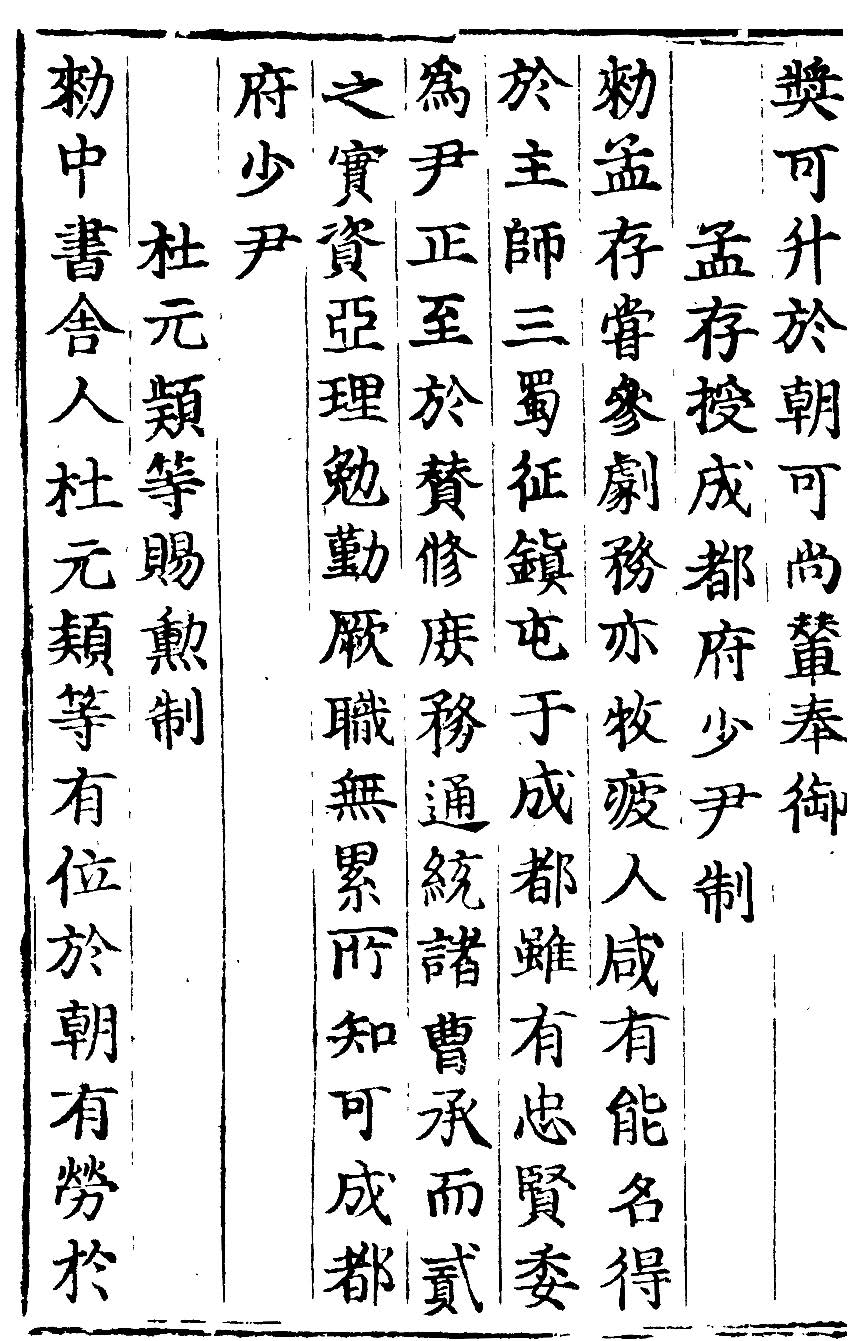 奬可升於朝可尚輦奉御
孟存授成都府少尹制
勑孟存嘗參劇務亦牧疲人咸有能名得
於主師三蜀征鎭屯于成都雖有忠賢委
爲尹正至於賛修庻務通統諸曹承而貳
之實資亞理勉勤厥職無累所知可成都
府少尹
杜元顈等賜勲制
勑中書舎人杜元頴等有位於朝有勞於